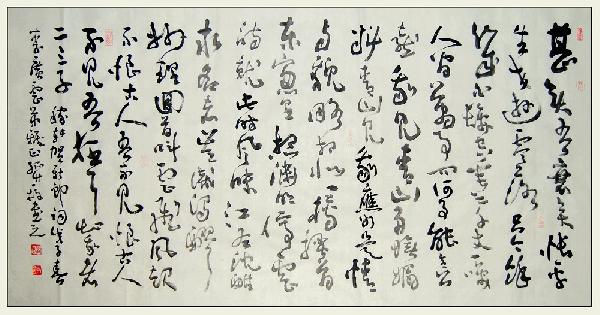 甚矣吾衰矣悵平
生交遊零落只今餘
幾白髮空垂三千丈一笑
人間萬事問何物能令公
喜我見青山多嫵媚
料青山見我應如是情
與貌略相似一樽搔首
東窗里想淵明停雲
詩就此時風味江左沈酣
求名者豈識濁醪
妙理回首叫雲飛風起
不恨古人吾不見恨古人
不見吾狂耳知我者
二三子 賀新郎詞